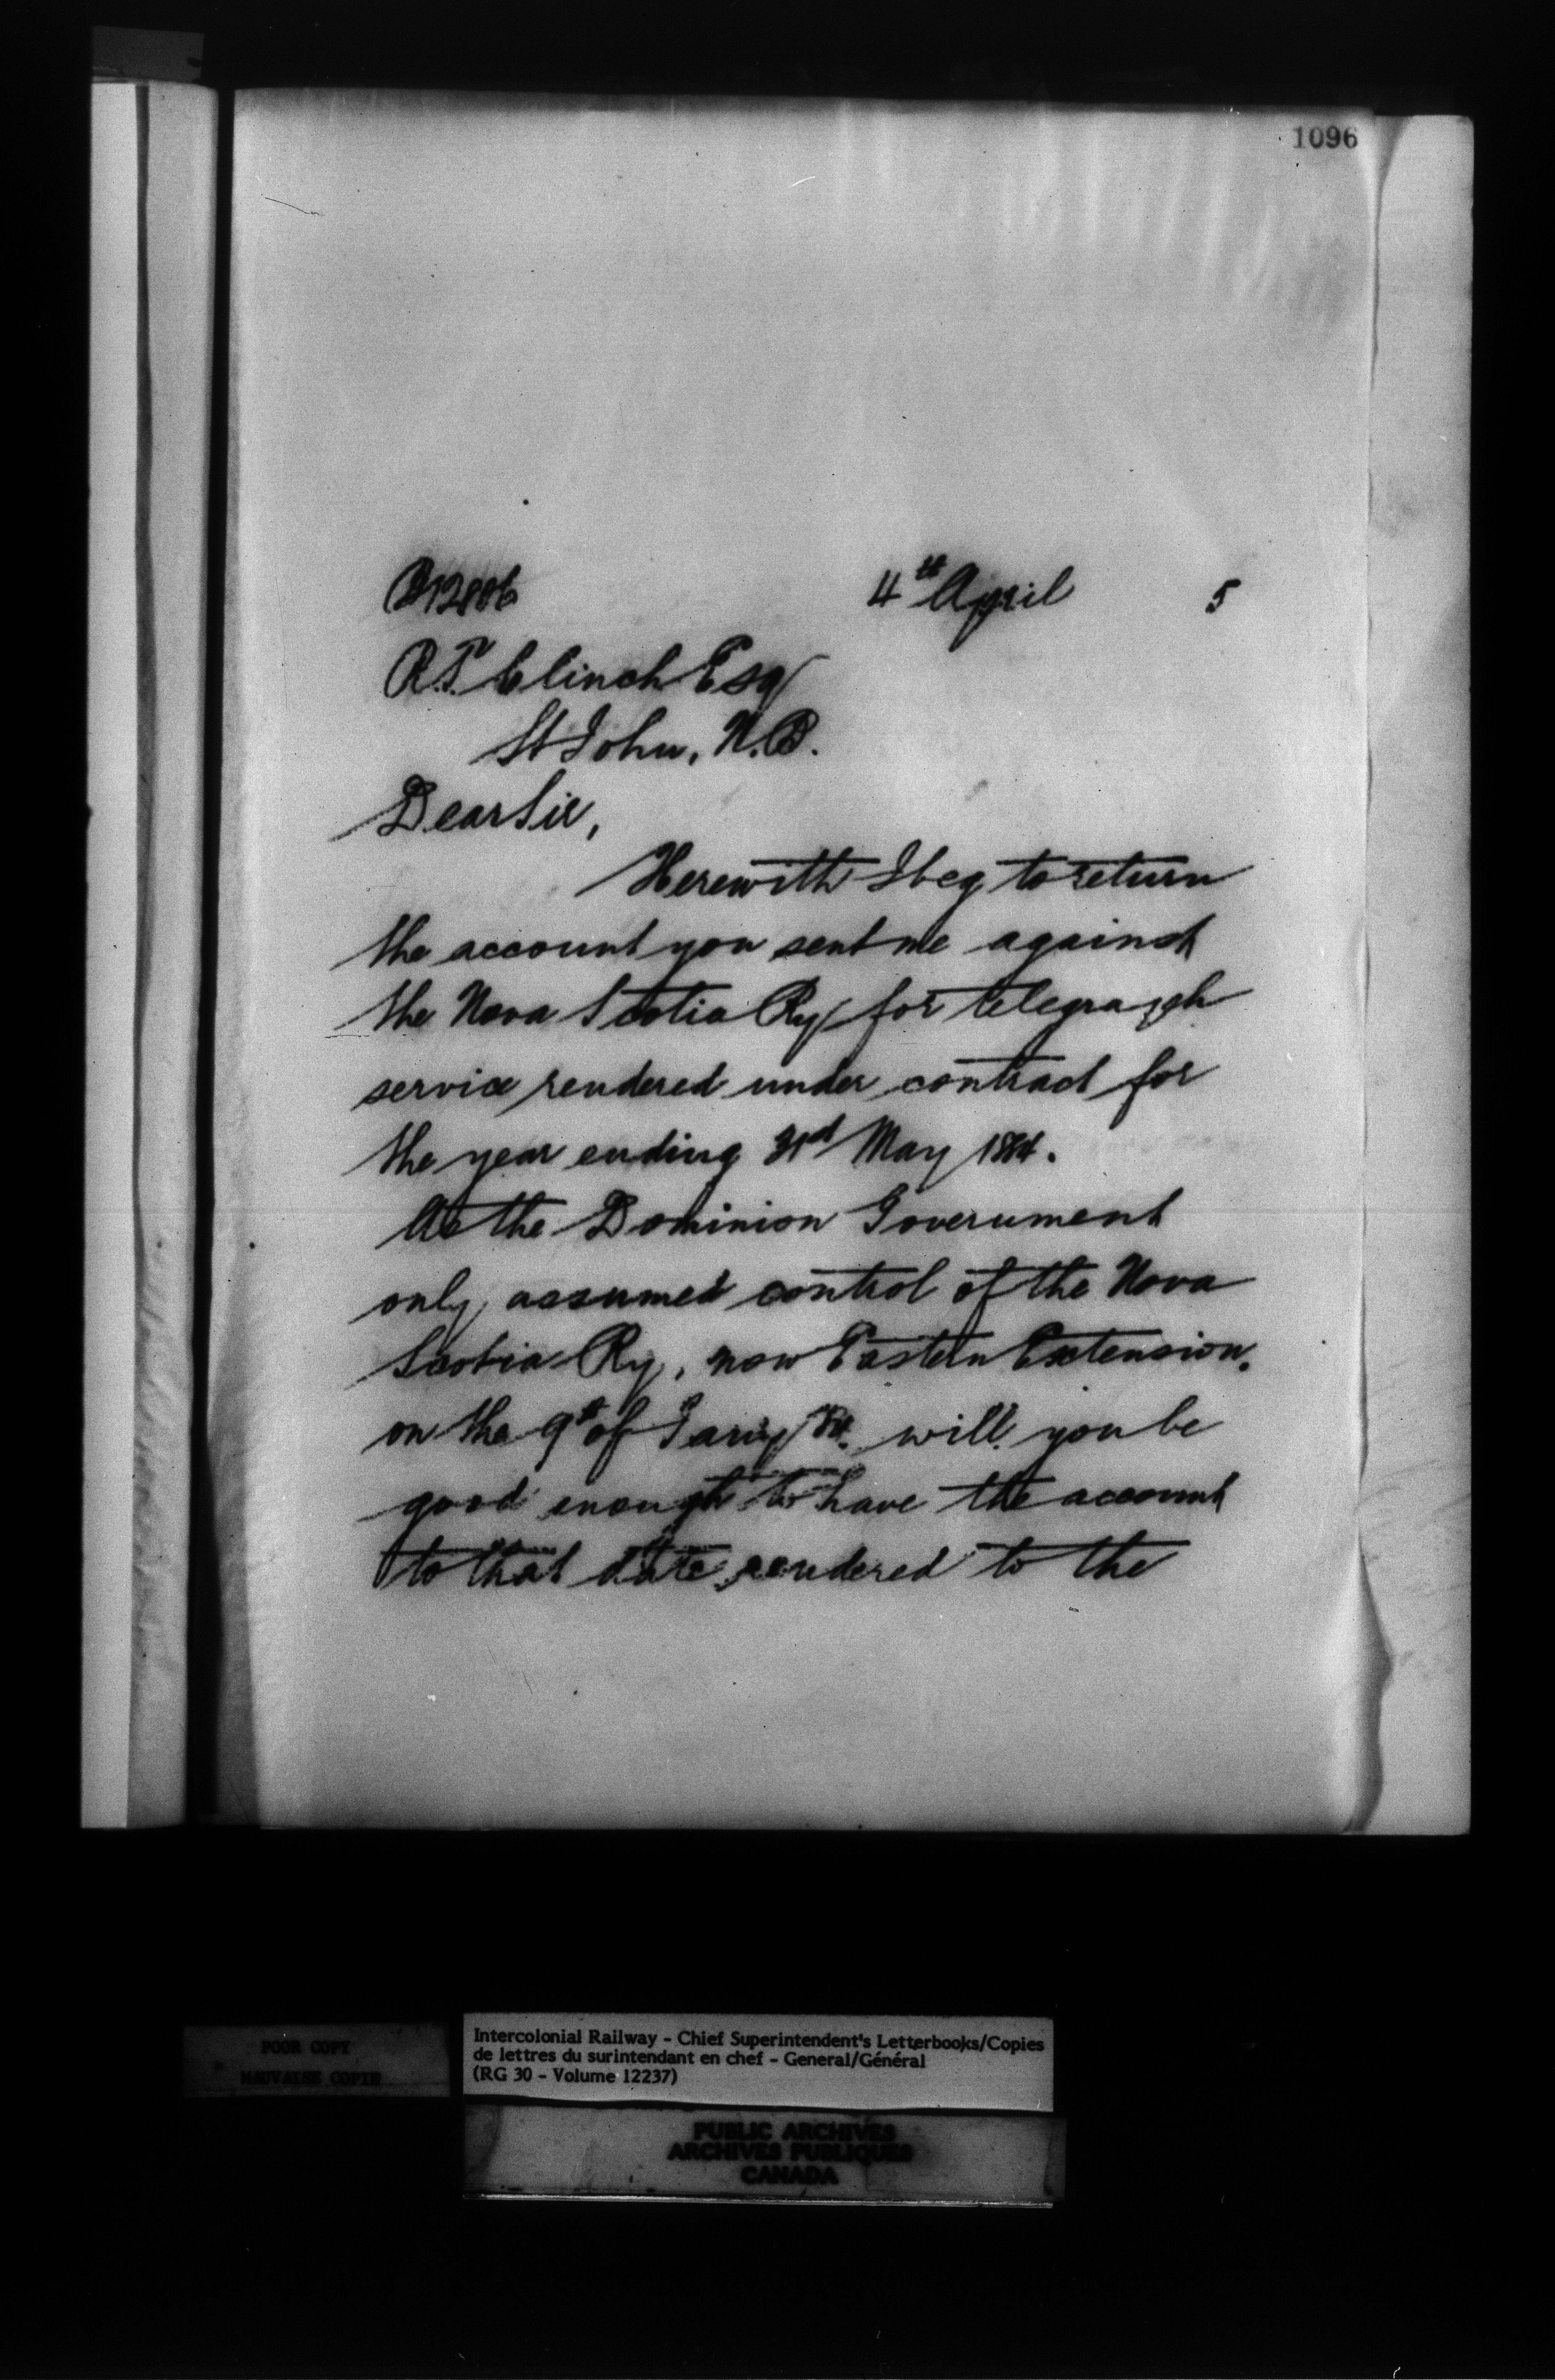 1096
4th April 5
R.T. Clinch Esq
St John, N.B.
Dear Sir,
Herewith I beg to return
the account you sent me against
the Nova Scotia Ry for telegraph
service rendered under contract for
the year ending 31st May 1884.
As the Dominion Government
only assumed control of the Nova
Scotia Ry, now Eastern Extension.
on the 9th of Jany 84. will you be
good enough to have the account
to that date rendered to the
POOR COPY
MAUVAISE COPIE
Intercolonial Railway - Chief Superintendent's Letterbooks/Copies
de lettres du surintendant en chef - General/Général
(RG 30 - Volume 12237)
PUBLIC ARCHIVES
ARCHIVES PUBLIQUES
CANADA